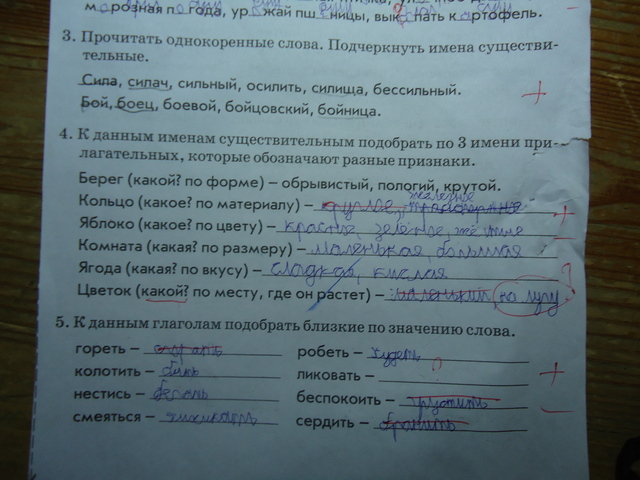 м о розная п о года, ур о жай пш е ницы, вык о пать к а ртофель.
3. Прочитать однокоренные слова. Подчеркнуть имена существи-
тельные.
Сила, силач, сильный, осилить, силища, бессильный.
Бой, боец, боевой, бойцовский, бойница.
4. К данным именам существительным подобрать по 3 имени при-
лагательных, которые обозначают разные признаки.
Берег (какой? по форме) – обрывистый, пологий, крутой.
железное
Кольцо (какое? по материалу) – круглое,
Яблоко (какое? по цвету) – красное, зелёное, жёлтое
Комната (какая? по размеру) – маленькая, большая
Ягода (какая? по вкусу) – сладкая, кислая
Цветок (какой? по месту, где он растет) – маленький, на лугу
5. К данным глаголам подобрать близкие по значению слова.
гореть – робеть –
колотить – бить ликовать –
нестись – бежать беспокоить – грустить
смеяться – хихикать сердить –